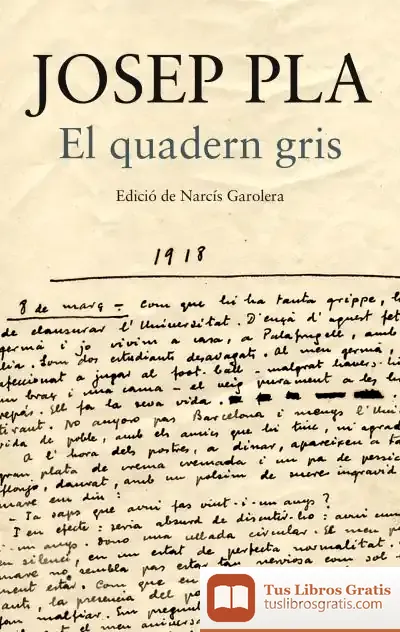 JOSEP PLA
El quadern gris
Edició de Narcís Garolera
1918
8 de març – Com que hi ha tanta grippe,
de clausurar l'Universitat. D'ençà d'aquest fet
germà i jo vivim a casa, a Palafrugell, amb
lia. Som dos estudiants desvagats. Al meu germà,
afeccionat a jugar al foot-ball – malgrat
un braç i una cama – el veig purament a les
repàs. Ell fa la seva vida.
tirant. No anyoro pas Barcelona i menys l'Uni
vida de poble, amb els amics que hi tinc, m'agrad
A l'hora dels postres, a dinar, apareixen a ta
gran plata de crema cremada i un pa de pessic
flonjo, daurat, amb un polsim de sucre ingravid
mare em diu:
– Ja saps que avui fas vint-i-un anys?
I en efecte: seria absurd de discutir-ho: avui
i-un anys. Dono una ullada circular. El meu p
en silenci, en un estat de perfecta normalitat.
mare no sembla pas estar tan nerviosa com sol
ment estar. Com que en
ants, la presencia del
fan malfiar. Em pregunt
el meu aniversa
Tus Libros Gratis
tuslibrosgratis.com